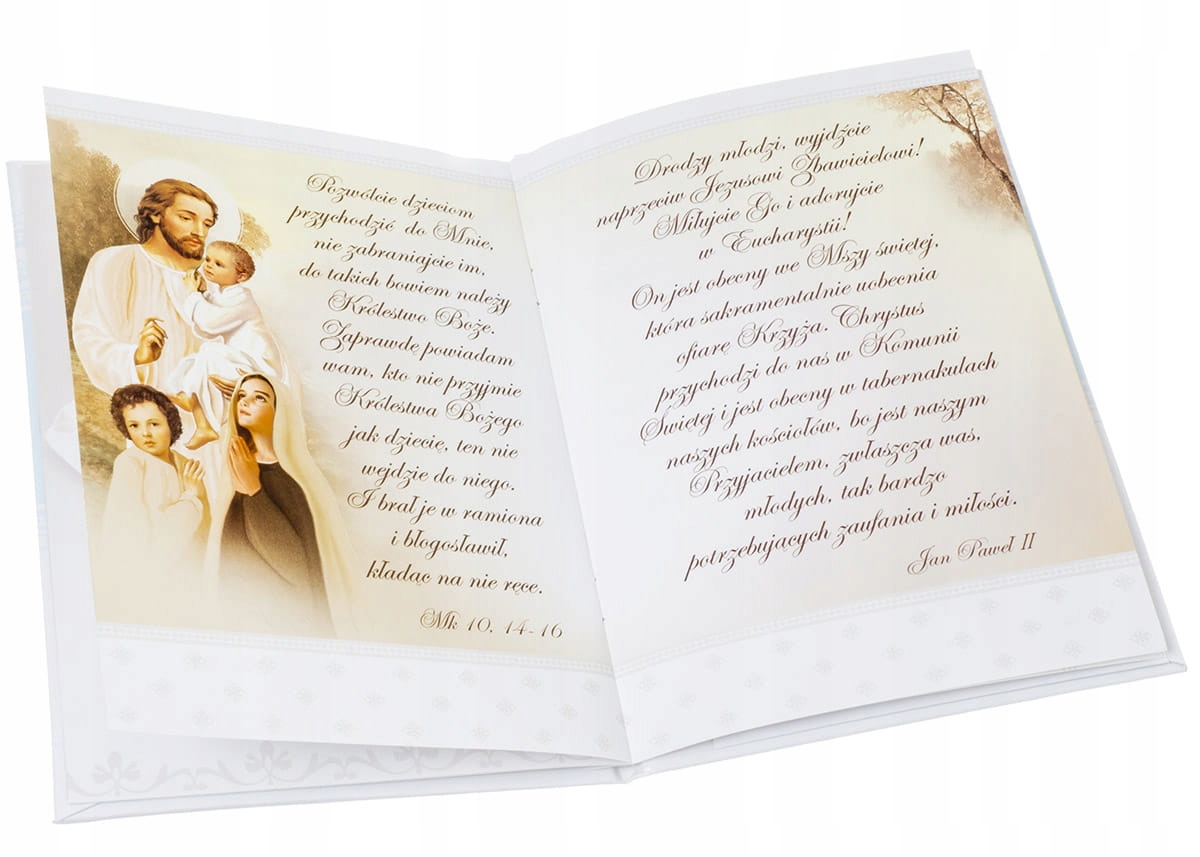 Pozwólcie dzieciom
przychodzić do Mnie,
nie zabraniajcie im,
do takich bowiem należy
Królestwo Boże.
Zaprawdę powiadam
wam, kto nie przyjmie
Królestwa Bożego
jak dziecię, ten nie
wejdzie do niego.
I brał je w ramiona
i błogosławił,
kładąc na nie ręce.
Mk 10, 14-16
Drodzy młodzi, wyjdźcie
naprzeciw Jezusowi Zbawicielowi!
Miłujcie Go i adorujcie
w Eucharystii!
On jest obecny we Mszy świętej,
która sakramentalnie uobecnia
ofiarę Krzyża. Chrystus
przychodzi do nas w Komunii
Świętej i jest obecny w tabernakulach
naszych kościołów, bo jest naszym
Przyjacielem, zwłaszcza was,
młodych, tak bardzo
potrzebujących zaufania i miłości.
Jan Paweł II